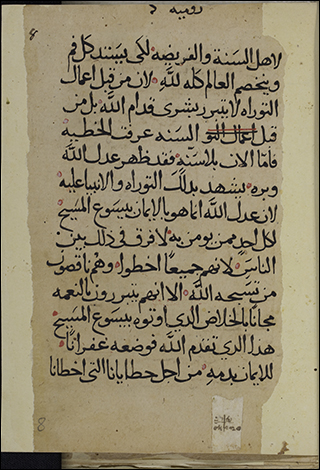 روميه د
8
لاهل السنة والفريضه لكى ينسد كل فم
ويخصم العالم كله لله لان من قبل اعمال
التوراه لا يتبرر بشرى قدام الله بل من
قبل اعمال التو السنه عرفت الخطيه
فاما الان بلا سنه فقد ظهر عدل الله
وبره يشهد بذلك التوراه والانبيا عليه
لان عدل الله انما هو بالايمان بيسوع المسيح
لكل احد ممن يومن به لا فرق فى ذلك بين
الناس لانهم جميعا اخطوا وهم ناقصون
من تسبحه الله الا انهم يتبررون بالنعمه
مجانا بالخلاص الدى اوتوه بيسوع المسيح
هدا الدى تقدم الله فوضعه غفرانا
للايمان بدمه من اجل خطايانا التى اخطانا
8